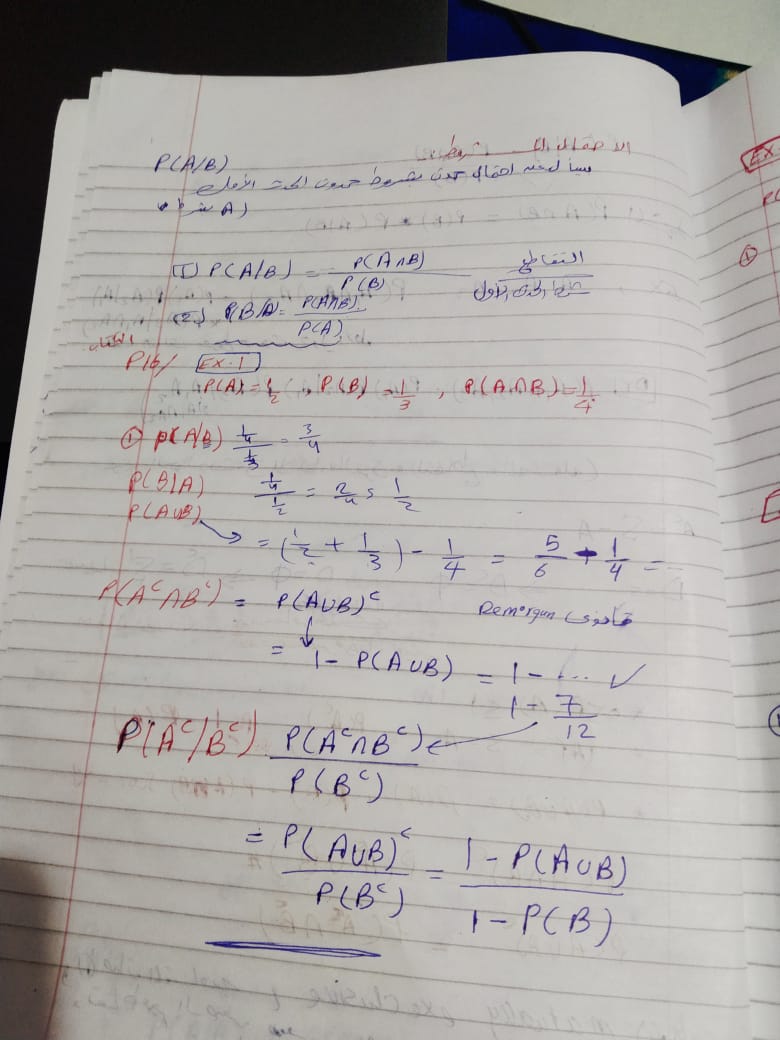 الاحتمال الـ شرطي
P(A/B)
احتمال حدث بشروط حدوث الحدث الأول
(A بشرط
(1) P(A/B) = P(A∩B) / P(B) التقاطع / الحدث الأول
(2) P(B/A) = P(A∩B) / P(A)
P16/ EX.1
P(A) = 1/2 , P(B) = 1/3 , P(A∩B) = 1/4
① P(A/B) 1/4 / 1/3 = 3/4
P(B|A) 1/4 / 1/2 = 2/4 = 1/2
P(A∪B)
= (1/2 + 1/3) - 1/4 = 5/6 - 1/4 =
P(Aᶜ∩Bᶜ) = P(A∪B)ᶜ Demorgan قانون
= 1 - P(A∪B) = 1 - ... ✓
1 - 7/12
P(Aᶜ/Bᶜ) P(Aᶜ∩Bᶜ) / P(Bᶜ)
= P(A∪B)ᶜ / P(Bᶜ) = 1 - P(A∪B) / 1 - P(B)
EX.